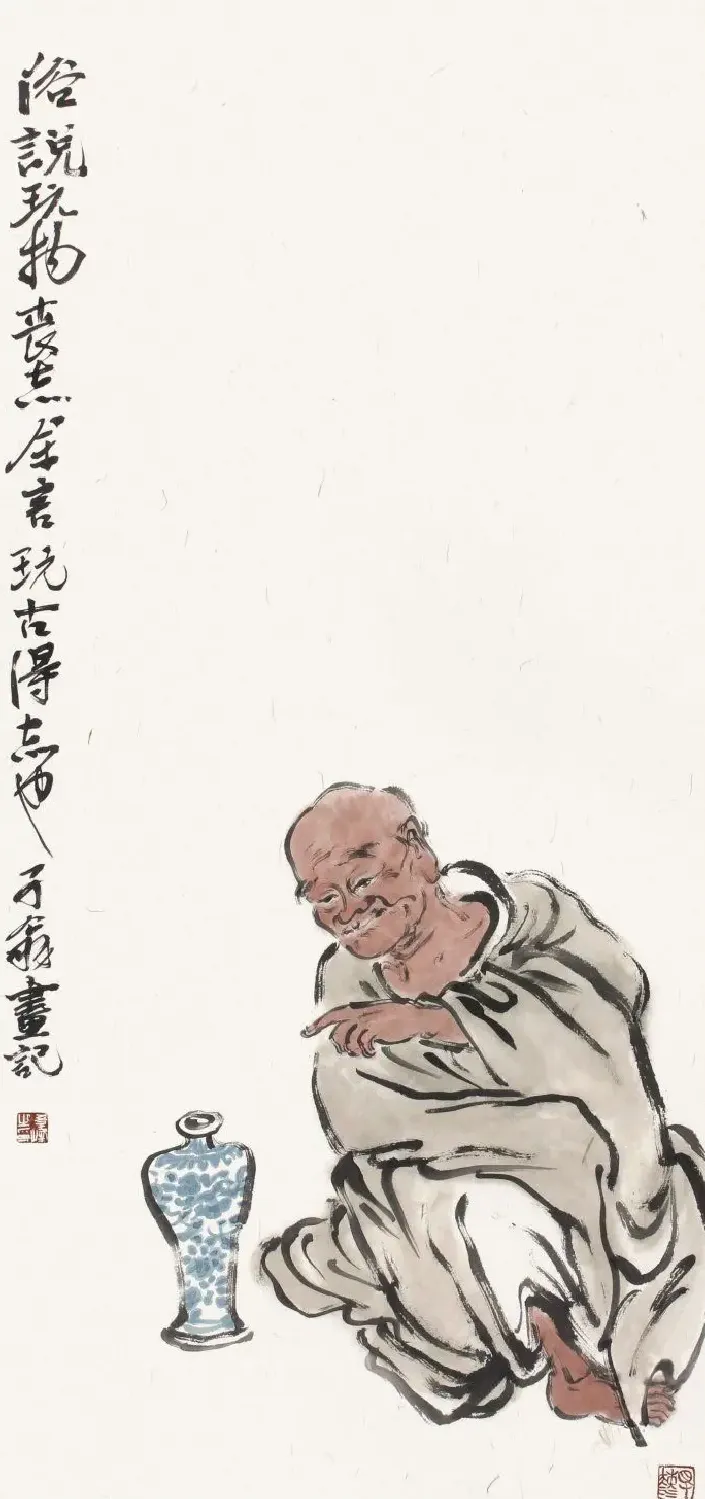 俗説玩物喪志余言玩古得志也子龢畫記